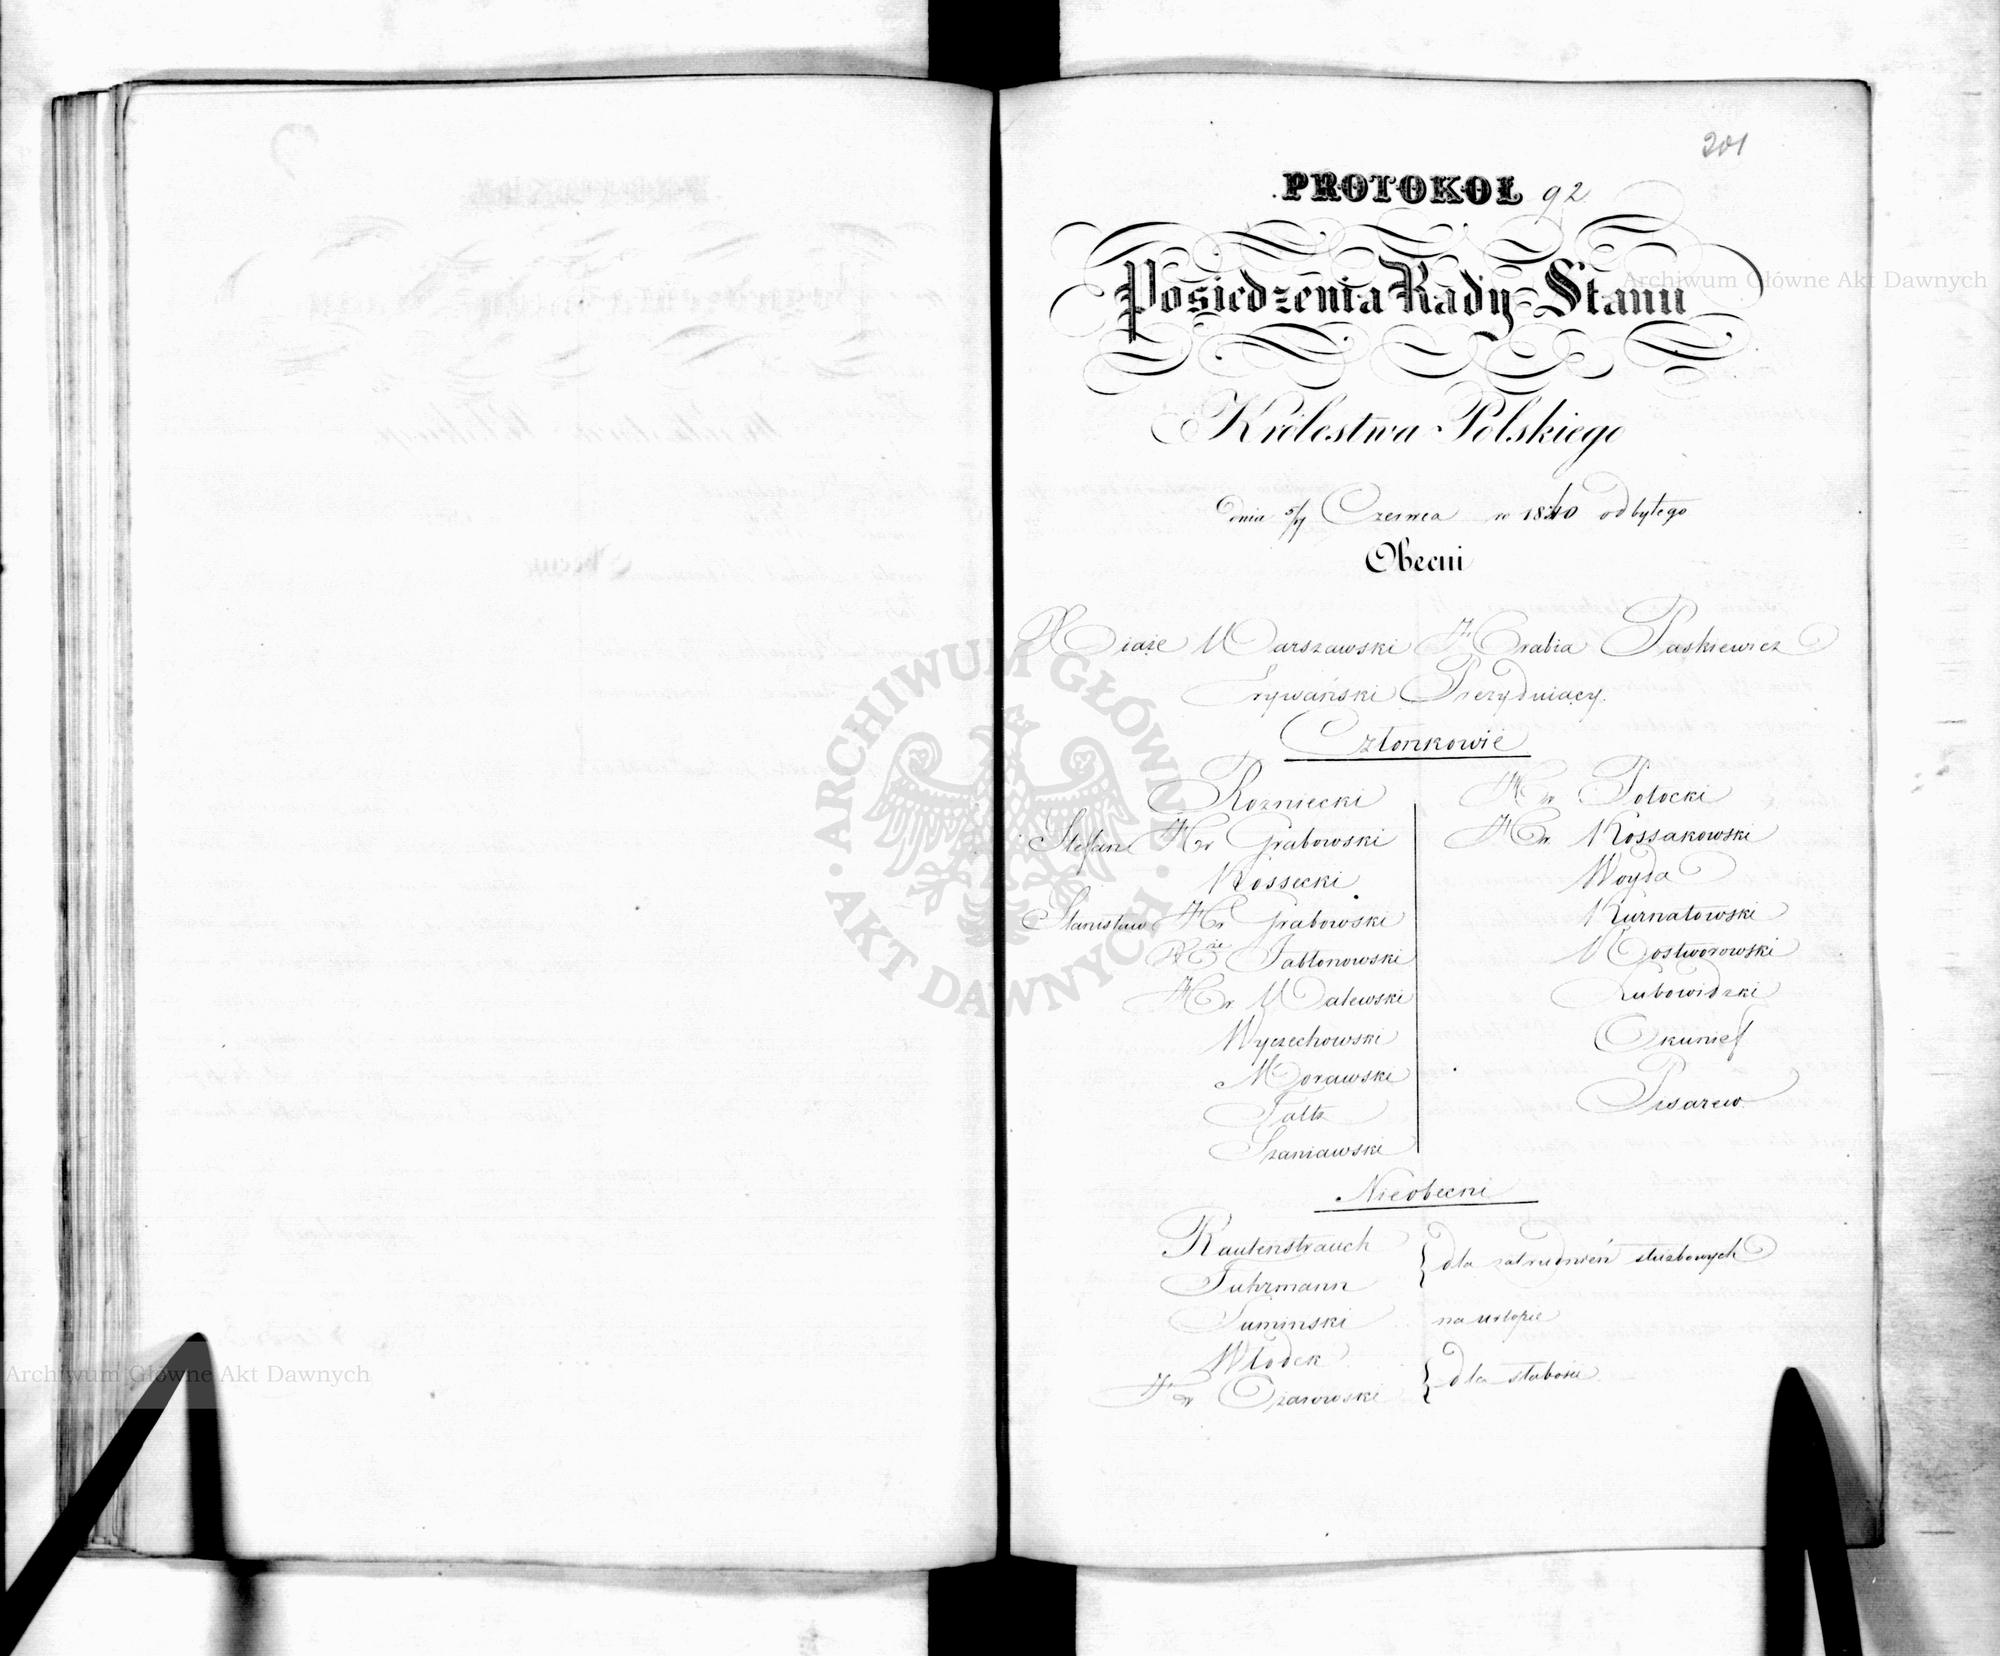 201
PROTOKOŁ 92
Posiedzenia Rady Stanu
Królestwa Polskiego
dnia 5/17 Czerwca w 1840 odbytego
Obecni
Xiąże Warszawski Hrabia Paskiewicz
Erywański Prezydujący.
Członkowie
Rozniecki
Stefan Hr Grabowski
Kossecki
Stanisław Hr Grabowski
Xże Jabłonowski
Hr Walewski
Wyczechowski
Morawski
Faltz
Szaniawski
Hr Potocki
Hr Kossakowski
Woyda
Kurnatowski
Mostworowski
Lubowidzki
Okunief
Pisarew
Nieobecni
Rautenstrauch
Fuhrmann
dla zatrudnień służbowych
Suminski na urlopie
Włodek
Hr Ożarowski
dla słabości
Archiwum Główne Akt Dawnych
Archiwum Główne Akt Dawnych
ARCHIWUM GŁÓWNE AKT DAWNYCH